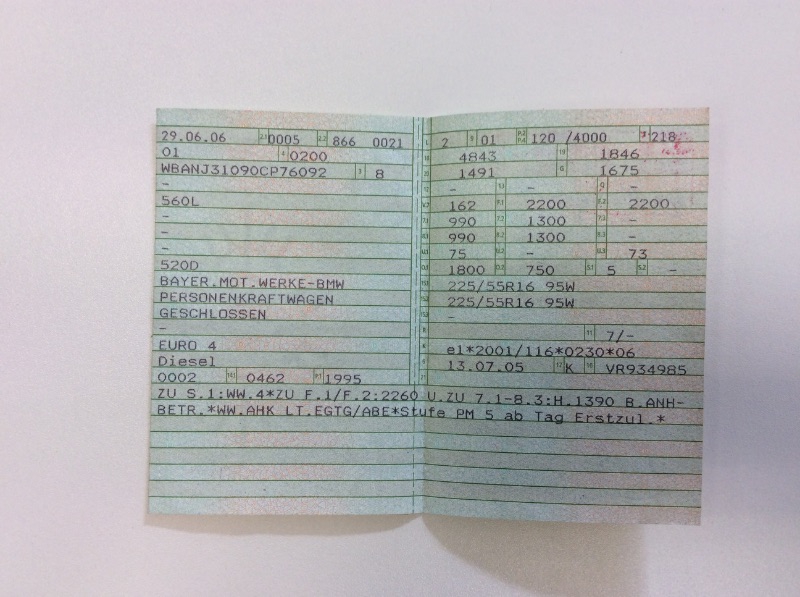 29.06.06 0005 866 0021
01 0200
WBANJ31090CP76092 8
-
560L
-
-
-
520D
BAYER.MOT.WERKE-BMW
PERSONENKRAFTWAGEN
GESCHLOSSEN
-
EURO 4
Diesel
0002 0462 1995
2 01 120 /4000 218
4843 1846
1491 1675
- - -
162 2200 2200
990 1300 -
990 1300 -
75 - 73
1800 750 5 -
225/55R16 95W
225/55R16 95W
-
7/-
e1*2001/116*0230*06
13.07.05 K VR934985
ZU S.1:WW.4*ZU F.1/F.2:2260 U.ZU 7.1-8.3:H.1390 B.ANH-
BETR.*WW.AHK LT.EGTG/ABE*Stufe PM 5 ab Tag Erstzul.*